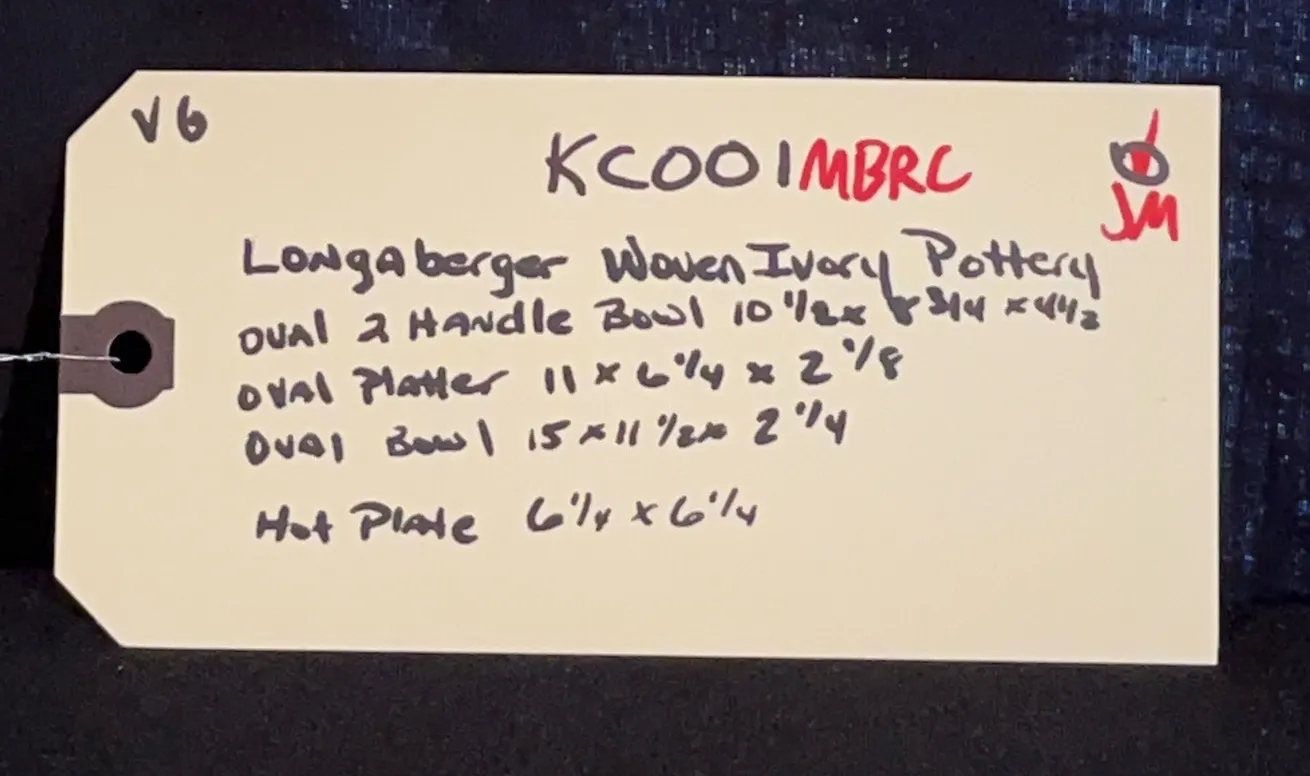 V6
KC001MBRC
JM
Longaberger Woven Ivory Pottery
Oval 2 Handle Bowl 10 1/2 x 8 3/4 x 4 1/2
Oval Platter 11 x 6 1/4 x 2 1/8
Oval Bowl 15 x 11 1/2 x 2 1/4
Hot Plate 6 1/4 x 6 1/4